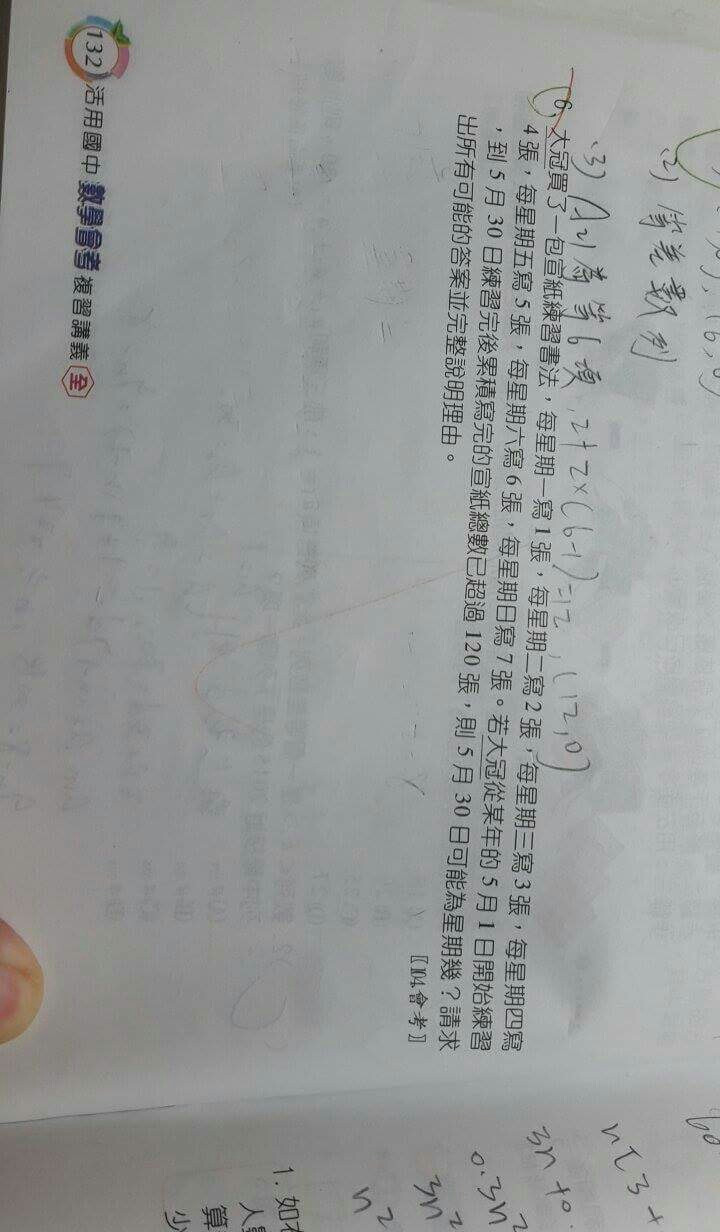 (2) 等差數列
(3) A21 為第 6 項, 2+2×(6-1)=12, (12,0)
6. 大冠買了一包宣紙練習書法,每星期一寫 1 張,每星期二寫 2 張,每星期三寫 3 張,每星期四寫
4 張,每星期五寫 5 張,每星期六寫 6 張,每星期日寫 7 張。若大冠從某年的 5 月 1 日開始練習
,到 5 月 30 日練習完後累積寫完的宣紙總數已超過 120 張,則 5 月 30 日可能為星期幾?請求
出所有可能的答案並完整說明理由。
〖104 會考〗
132 活用國中數學會考複習講義 全
3n+0
0.3n²
3n²
n²
1. 如